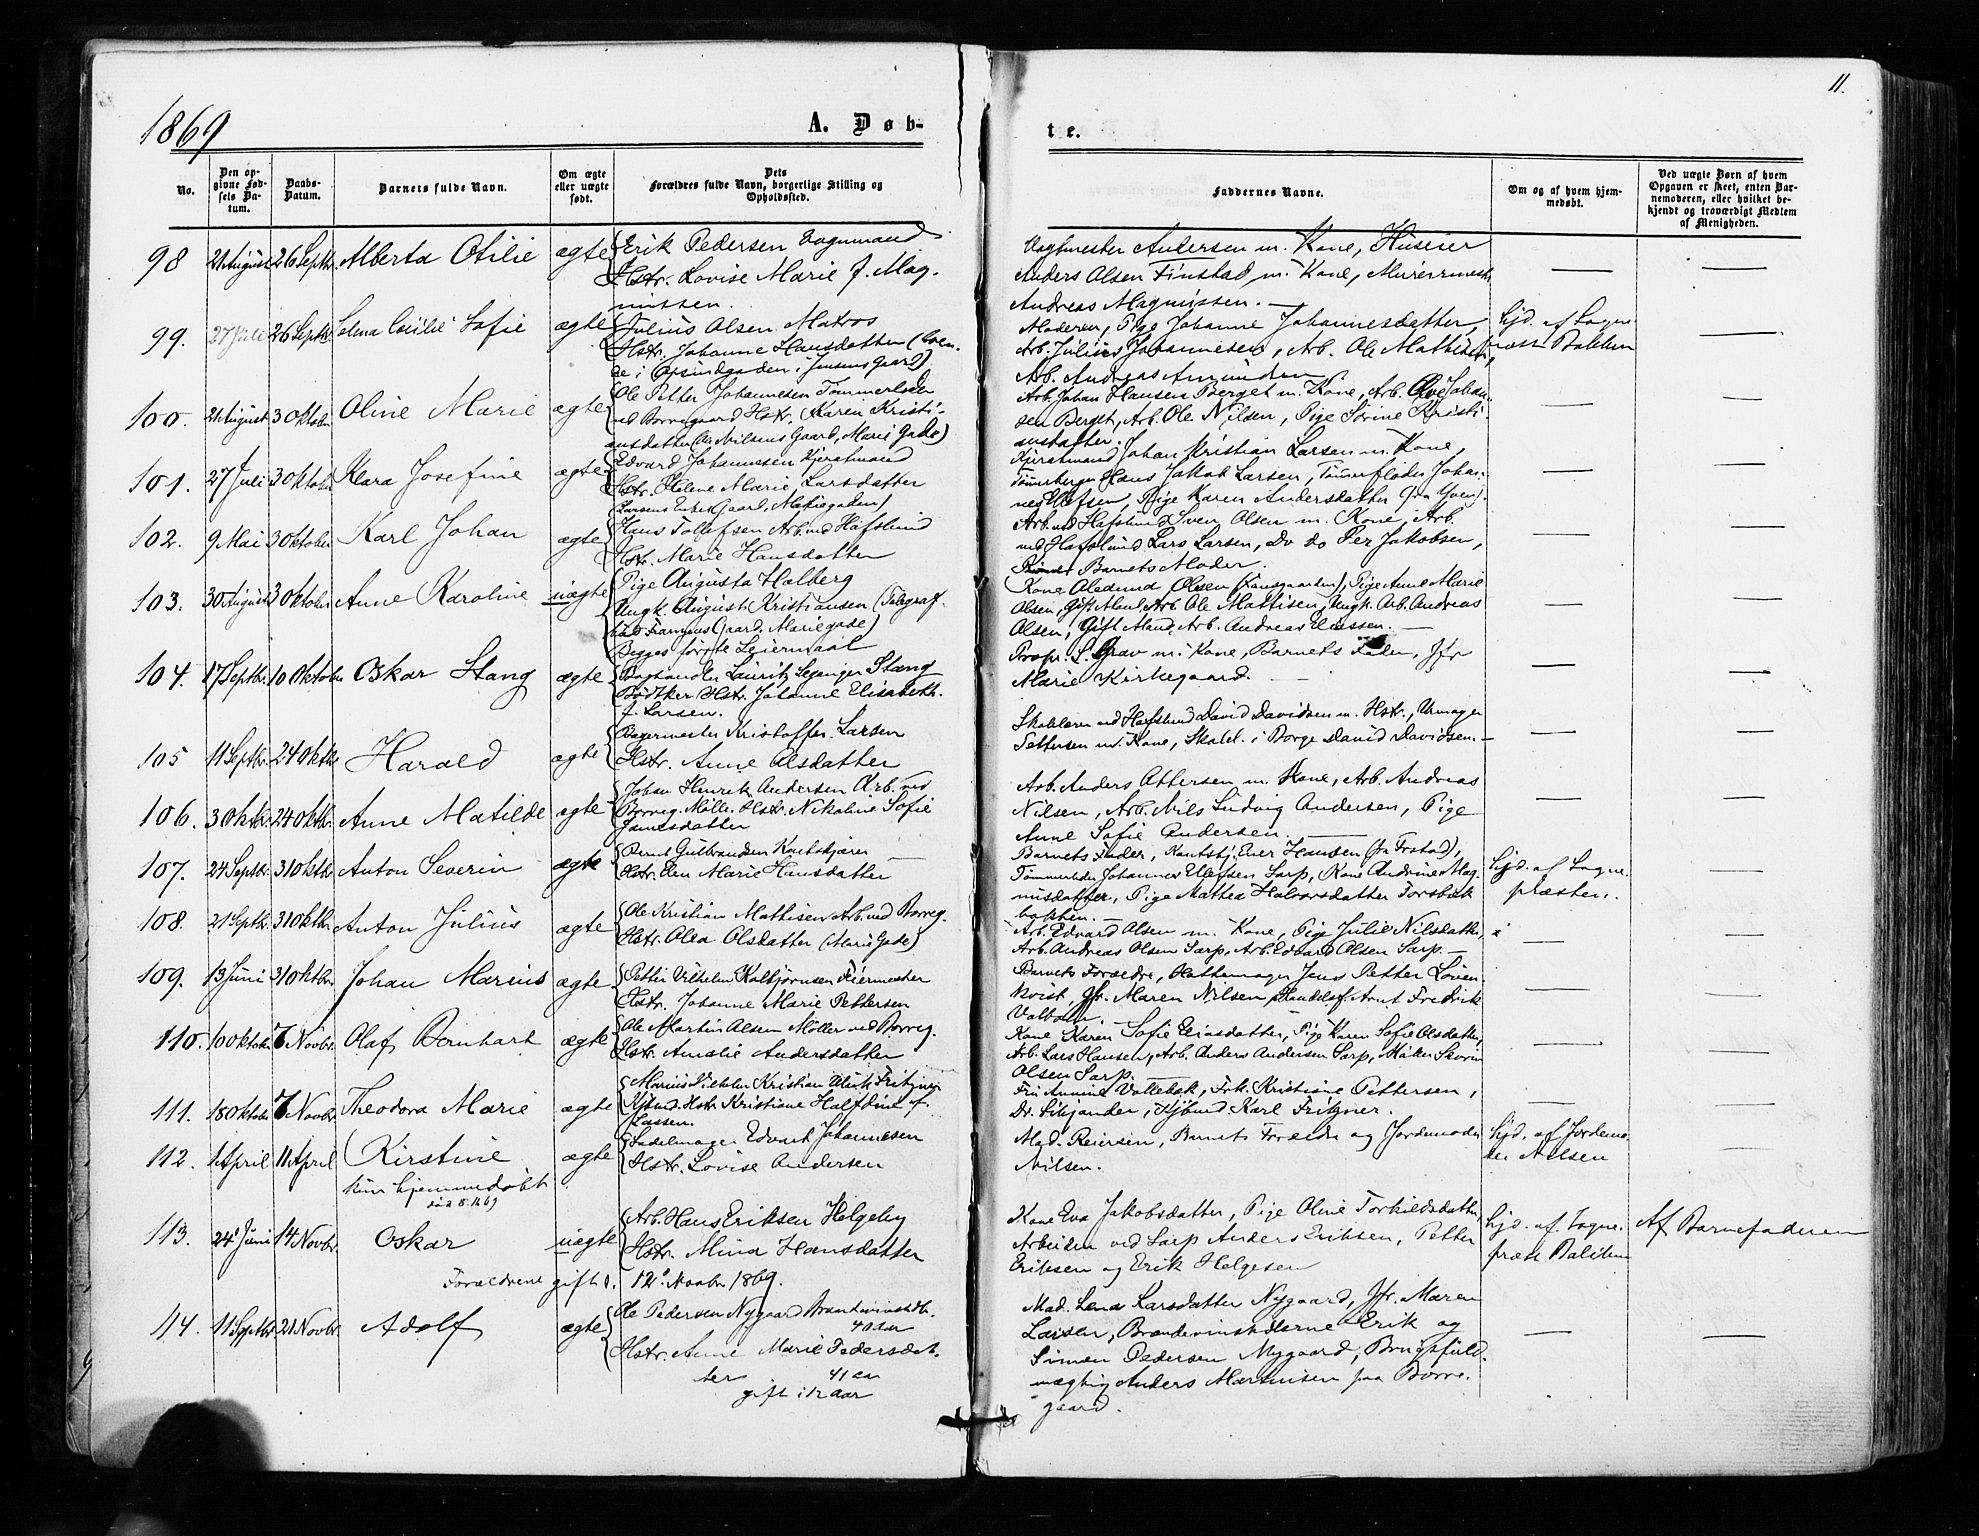 11.
1869
A. Døb-
te.
No.
Den opgivne Fødsels Datum.
Daabs-Datum.
Barnets fulde Navn.
Om ægte eller uægte født.
Dets Forældres fulde Navn, borgerlige Stilling og Opholdssted.
Faddernes Navne.
Om og af hvem hjemmedøbt.
Ved uægte Børn af hvem Opgaven er skeet, enten Barnemoderen, eller hvilket bekjendt og troværdigt Medlem af Menigheden.
98 21 August 26 Septbr. Alberta Otilie ægte Erik Pedersen Vognmand
Hstr. Lovise Marie f. Mag-
nussen.
Vagtmester Andersen m. Kone, Huseier
Anders Olsen Finstad m. Kone, Murermest.
Andreas Magnussen.
99. 27 Juli 26 Septbr. Selma Cecilie Sofie ægte Julius Olsen Matros
Hstr. Johanne Hansdatter
i Jensens Gaard)
Moderen, Pige Johanne Johannesdatter,
Arb. Julius Johannesen, Arb. Ole Mathisen,
Arb. Andreas Amundsen
Hjd. af Sogne-
præst Bakken
100. 21 August 3 Oktober Oline Marie ægte Ole Petter Johannesen Tømmerloder
ved Borregaard Hstr. Karen Kristi-
ansdatter (Ole Nilsens Gaard, Marie Gade)
Arb. Johan Hansen Berget m. Kone, Arb. Ole Johan-
sen Berget, Arb. Ole Nilsen, Pige Sørine Kristi-
ansdatter.
101. 27 Juli 3 Oktober Klara Josefine ægte Edvard Johannessen Kjøratmand
Hstr. Helene Marie Larsdatter
(Larsens Enkes Gaard, Mariegaden)
Kjøratmand Johan Kristian Larsen m. Kone,
Hans Jakob Larsen, Tømmerfløder Johan-
nes Olefsen, Pige Karen Andersdatter
102. 9 Mai 3 Oktober Karl Johan ægte Hans Tollefsen Arb. ved Hafslund
Hstr. Marie Hansdatter
Arb. ved Hafslund Sven Olsen m. Kone, Arb.
ved Hafslund Lars Larsen, Do do Per Jakobsen,
Barnets Moder.
103. 30 August 3 Oktober Anne Karoline uægte Pige Augusta Halberg
Ungk. August Kristiansen (Telegraf-
Gaard, Mariegade)
Begges første Leiermaal
Kone Oledina Olsen, Pige Anne Marie
Olsen, Gift Mand Arb. Ole Mattisen, Ungk. Arb. Andreas
Olsen, Gift Mand Arb. Andreas Eliassen.
104. 17 Septbr. 10 Oktober Oskar Stang ægte Boghandler Lauritz Seganger Stang
Bødtker Hstr. Johanne Elisabeth
f. Larsen.
Propr. S. Grav m. Kone, Barnets Fader, Jfr
Marie Kirkegaard.
105 11 Septbr. 24 Oktbr. Harald ægte Bagermester Kristoffer Larsen
Hstr. Anne Olsdatter
Skolelærer ved Hafslund David Davidsen m. Hstr., Urmager
Pettersen m. Kone, Skolel. i Borge David Davidsen.
106. 3 Oktbr. 24 Oktbr. Anne Matilde ægte Johan Henrik Andersen Arb. ved
Borreg. Mølle. Hstr. Nikoline Sofie
Jansdatter
Arb. Anders Attersen m. Kone, Arb. Andreas
Nilsen, Arb. Nils Ludvig Andersen, Pige
Anne Sofie Andersen.
107. 24 Septbr. 31 Oktbr. Anton Severin ægte Bernt Gulbrandsen Kantskjærer
Hstr. Elen Marie Hansdatter
Barnets Fader, Kantskj. Even Hansen,
Tømmerleder Johannes Olefsen Sarp, Kone Andrine Mag-
nusdatter, Pige Mathea Halvorsdatter Torsbæk-
bakken.
Hjd. af Sogne-
præsten.
108. 21 Septbr. 31 Oktbr. Anton Julius ægte Ole Kristian Mathisen Arb. ved Borreg.
Hstr. Olea Olsdatter (Marie Gade)
Arb. Edvard Olsen m. Kone, Pige Julie Nilsdatter,
Arb. Andreas Olsen Sarp, Arb. Edvard Olsen Sarp.
109. 13 Juni 31 Oktbr. Johan Marius ægte Petter Vilhelm Kolbjørnsen Feiermester
Hstr. Johanne Marie Pettersen
Barnets Forældre, Hattemager Jens Petter Løven-
kvist, Jfr. Maren Nilsen, Handelsf. Arnt Fredrik
110. 10 Oktober 7 Novbr. Olaf Bernhart ægte Ole Martin Olsen Møller ved Borreg.
Hstr. Amalie Andersdatter
Kone Karen Sofie Eliasdatter, Pige Karen Sofie Olsdatter,
Arb. Lars Hansen, Arb. Anders Andersen Sarp, Severin
Olsen Sarp.
111. 18 Oktober 7 Novbr. Theodora Marie ægte Marius Vilhelm Kristian Fritzner
Kjbmd. Hstr. Kristiane Halfdine f.
Lassen.
Fru Annine Vattebæk, Frk. Kristine Pettersen,
Dr. Sikjander, Kjbmd Karl Fritzner.
112. 1 April 11 April Kirstine ægte Sadelmager Edvart Johannesen
Hstr. Lovise Andersen
kun hjemmedøbt
Mad. Reiersen, Barnets Forældre og Jordemoder
Nilsen.
Hjd. af Jordemo-
der Nilsen
113. 24 Juni 14 Novbr. Oskar uægte Arb. Hans Eriksen Helgeby
Hstr. Mina Hansdatter
Forældrene gift d. 12 Novbr 1869.
Kone Eva Jakobsdatter, Pige Oline Torkildsdatter,
Arbeider ved Sarp Anders Eriksen, Petter
Eriksen og Erik Helgesen
Hjd. af Sogne-
præst Bakken
Af Barnefaderen
114. 11 Septbr. 21 Novbr. Adolf ægte Ole Pedersen Nygaard Brændevinshdl.
40 aar
Hstr. Anne Marie Pedersdat-
ter 41 aar
gift i 12 aar
Mad. Lena Larsdatter Nygaard, Jfr. Maren
Larsen, Brændevinshdlerne Erik og
Simen Pedersen Nygaard, Brugsfuld-
mægtig Anders Martinisen paa Borre-
gaard.